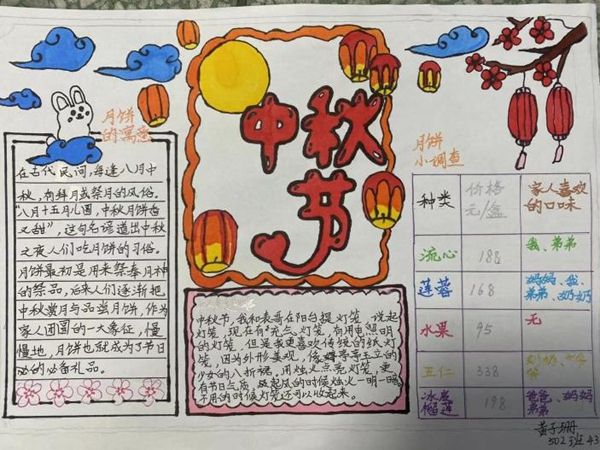 月饼
的寓意
在古代民间,每逢八月中
秋,有拜月或祭月的风俗。
"八月十五月儿圆,中秋月饼香
又甜",这句名谚道出中秋
之夜人们吃月饼的习俗。
月饼最初是用来祭奉月神
的祭品,后来人们逐渐把
中秋赏月与品尝月饼,作为
家人团圆的一大象征,慢
慢地,月饼也就成为了节日
必的必备礼品。
中秋节
中秋节,我和表哥在阳台提灯笼,说起
灯笼,现在有充气灯笼,有用电照明
的灯笼,但是我更喜欢传统的纸灯
笼,因为外形美观,像亭亭玉立的
少女的八折裙,用烛火点亮灯笼,更
有节日气质,起风的时候烛火一明一暗
不用的时候灯笼还可以收起来。
月饼
小调查
种类 价格元/盒 家人喜欢的口味
流心 188 我、弟弟
莲蓉 168 妈妈、我、弟弟、奶奶
水果 95 无
五仁 338
冰皮榴莲 198 爸爸、妈妈弟弟
黄子珊
302班43